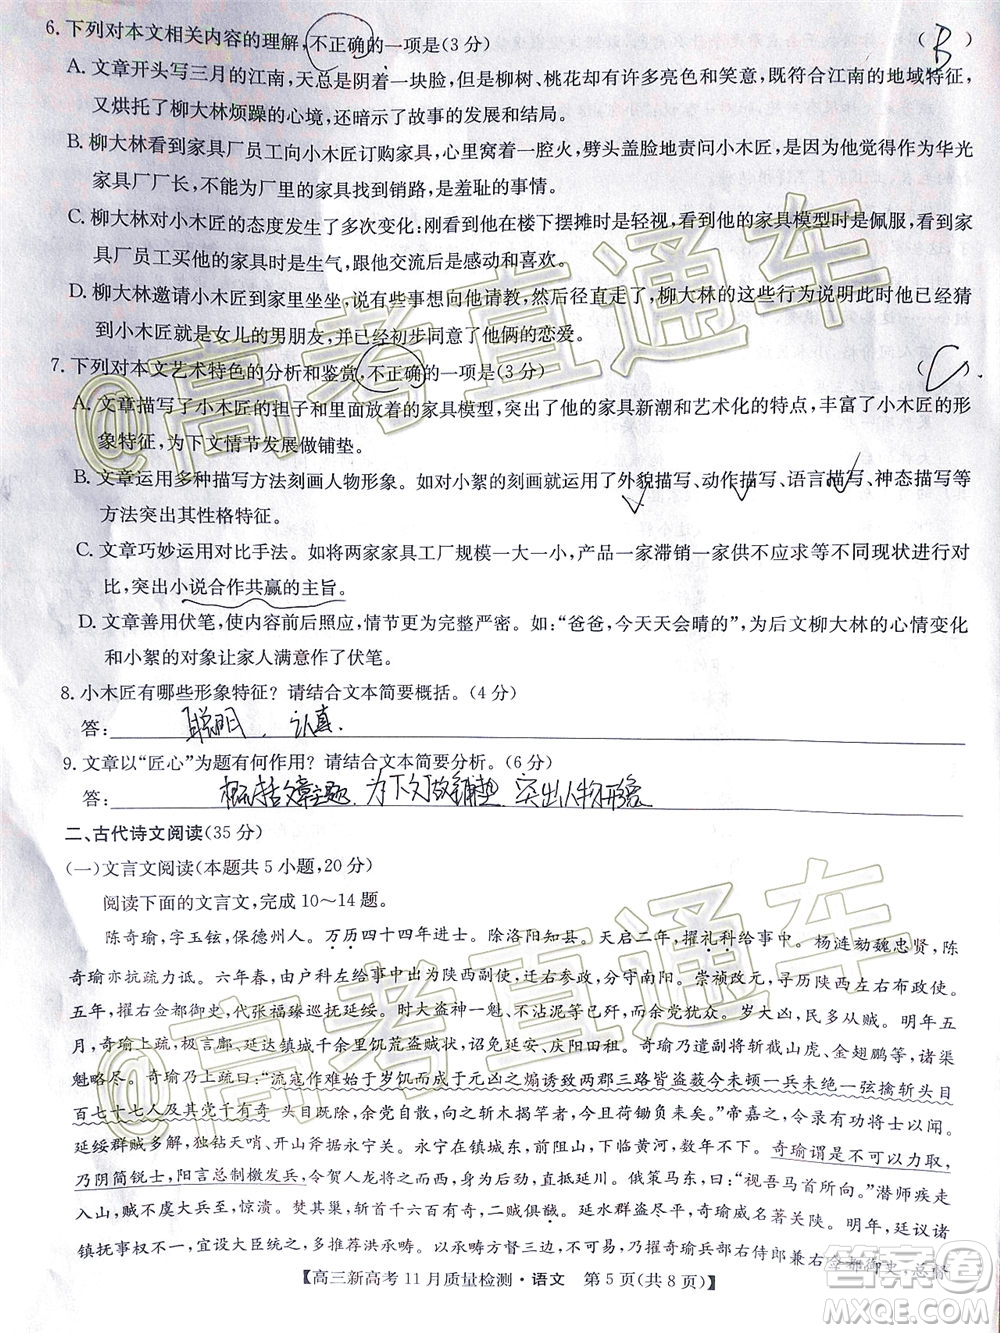 6. 下列对本文相关内容的理解,不正确的一项是(3 分) ( B )
A. 文章开头写三月的江南,天总是阴着一块脸,但是柳树、桃花却有许多亮色和笑意,既符合江南的地域特征,
又烘托了柳大林烦躁的心境,还暗示了故事的发展与结局。
B. 柳大林看到家具厂员工向小木匠订购家具,心里窝着一腔火,劈头盖脸地质问小木匠,是因为他觉得作为华光
家具厂厂长,不能为厂里的家具找到销路,是羞耻的事情。
C. 柳大林对小木匠的态度发生了多次变化:刚看到他在楼下摆摊时是轻视,看到他的家具模型时是佩服,看到家
具厂员工买他的家具时是生气,跟他交流后是感动和喜欢。
D. 柳大林邀请小木匠到家里坐坐,说有些家具方面的事要向他请教,然后径直走了,柳大林的这些行为说明此时他已经猜
到小木匠就是女儿的男朋友,并已经初步同意了他俩的恋爱。
7. 下列对本文艺术特色的分析和鉴赏,不正确的一项是(3 分) ( C
A. 文章描写了小木匠的担子和里面放着的家具模型,突出了他的家具新潮和艺术化的特点,丰富了小木匠的形
象特征,为下文情节发展做铺垫。
B. 文章运用多种描写方法刻画人物形象。如对小絮的刻画就运用了外貌描写、动作描写、语言描写、神态描写等
方法突出其性格特征。
C. 文章巧妙运用对比手法。如将两家家具工厂规模一大一小,产品一家滞销一家供不应求等不同现状进行对
比,突出小说合作共赢的主旨。
D. 文章善用伏笔,使内容前后照应,情节更为完整严密。如:“爸爸,今天天会晴的”,为后文柳大林的心情变化
和小絮的对象让家人满意作了伏笔。
8. 小木匠有哪些形象特征?请结合文本简要概括。(4 分)
答: 聪明、认真.
9. 文章以“匠心”为题有何作用?请结合文本简要分析。(6 分)
答: 概括文章主题、为下文做铺垫 突出人物形象
二、古代诗文阅读(35 分)
(一)文言文阅读(本题共 5 小题,20 分)
阅读下面的文言文,完成 10~14 题。
陈奇瑜,字玉铉,保德州人。万历四十四年进士。除洛阳知县。天启二年,擢礼科给事中。杨涟劾魏忠贤,陈
奇瑜亦抗疏力诋。六年春,由户科左给事中出为陕西副使,迁右参政,分守南阳。崇祯改元,加按察使职,
五年,擢右佥都御史,代张福臻巡抚延绥。时大盗神一魁、不沾泥等已歼,而余党犹众。岁大凶,
奇瑜上疏,极言鄜、延达镇城千余里饥荒盗贼状,诏免延安、庆阳田租。奇瑜乃遣副将斩截山虎、金翅鹏等,诸渠
魁略尽。奇瑜乃上疏曰:“流寇作难始于岁饥而成于元凶之煽诱致两郡三路皆盗薮今未顿一兵未绝一弦擒斩头目
百七十七人及其党千有奇 头目既除余党自散向之斩木揭竿者,今且荷锄负耒矣。”帝嘉之,令录有功将士以闻。
延绥群贼多解,独钻天哨、开山斧据永宁关。永宁在镇城东,前阻山,下临黄河,数年不下。奇瑜谓是不可以力取,
乃阴简锐士,阳言总制檄发兵,令贺人龙将之而西,身往延川。俄策马东,曰:“视吾马首所向。”潜师疾走
入山,贼大惊溃。焚其巢,斩首千六百有奇,二贼俱歼。延水群盗尽平,奇瑜威名著关陕。明年,廷议诸
镇抚事权不一,宜设大臣统之,多推荐洪承畴。以承畴方督三边,乃擢奇瑜兵部右侍郎兼右佥都御史,总督
【高三新高考 11 月质量检测·语文 第 5 页(共 8 页)】
@高考直通车
@高考直通车
MXQE.COM